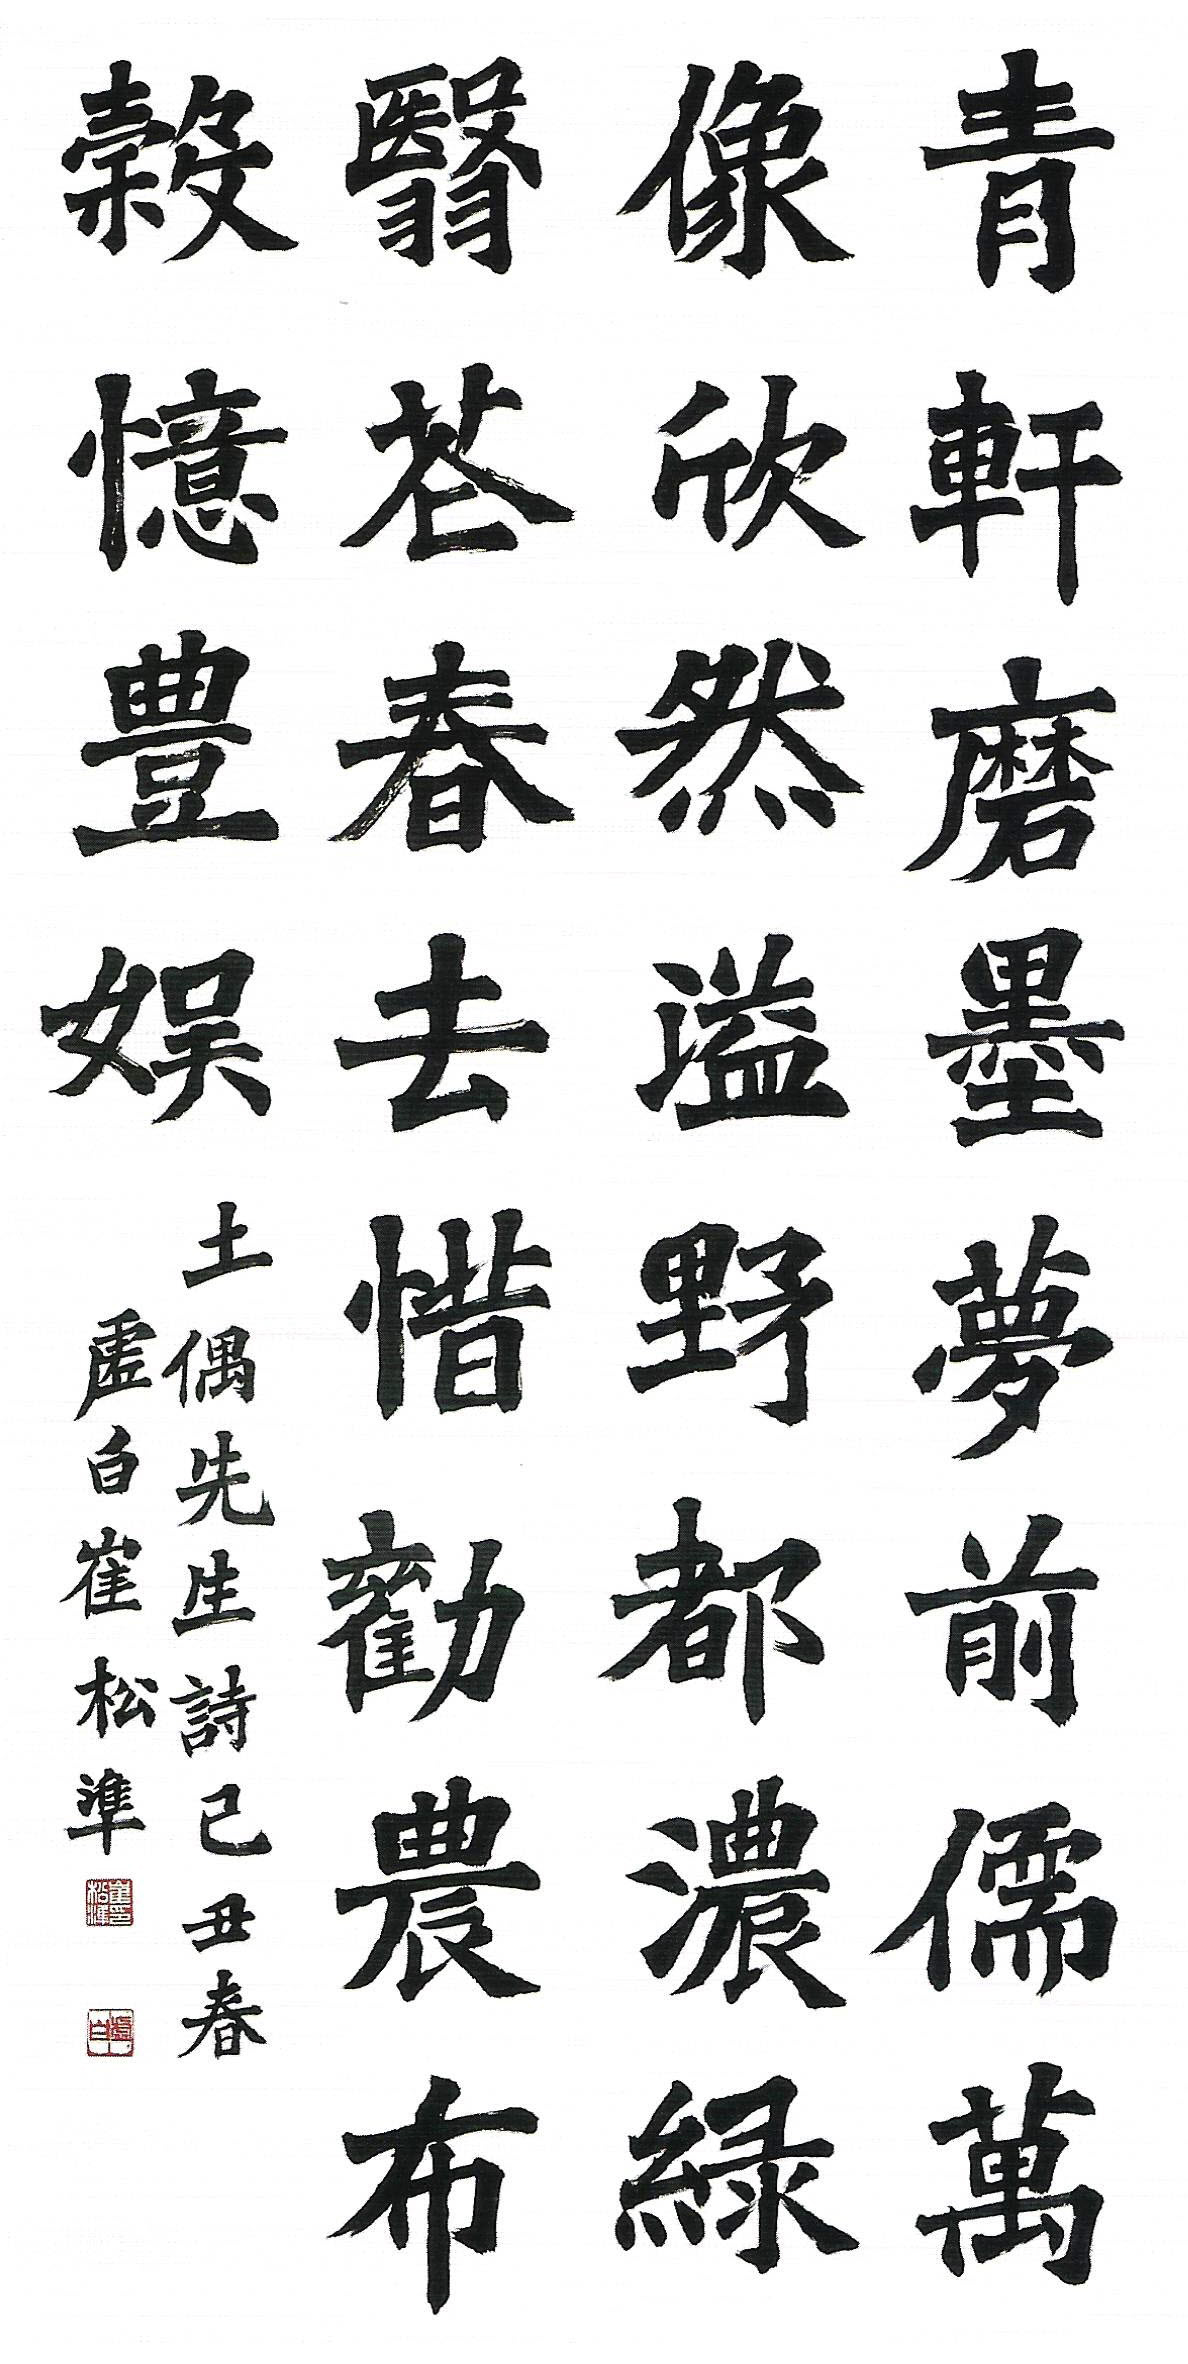 青軒磨墨夢前儒萬
像欣然溢野都濃綠
翳芲春去惜勸農布
穀憶豊娛
土偶先生詩己丑春
虛白崔松準
崔印松準
虛白